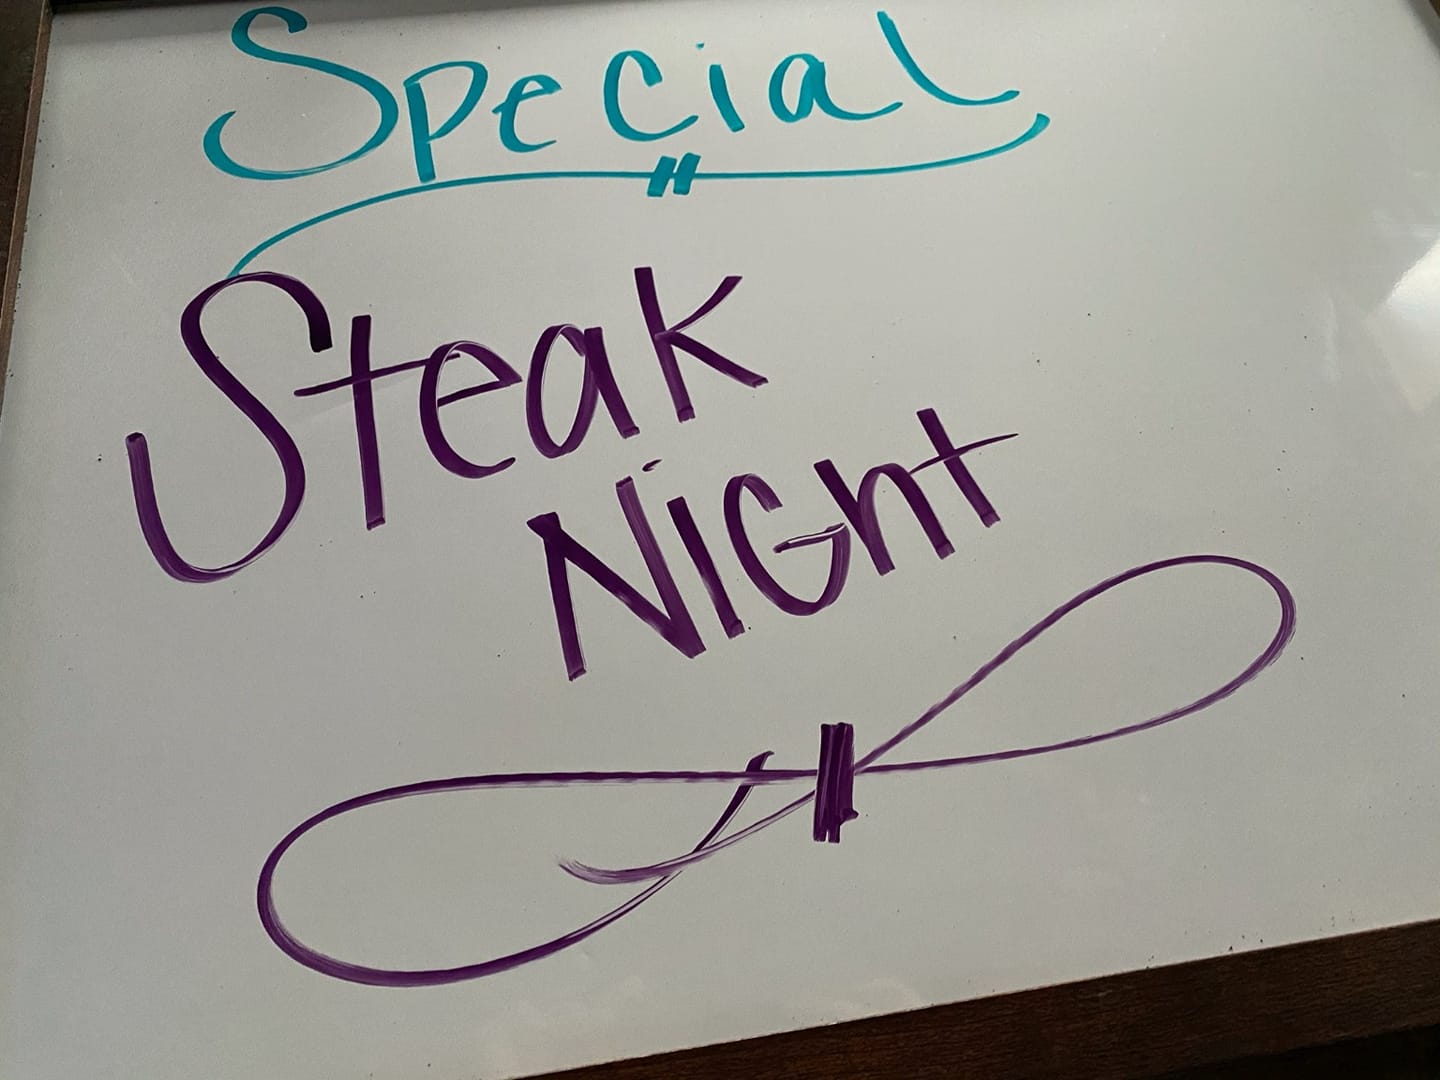 Special
Steak
NiGht